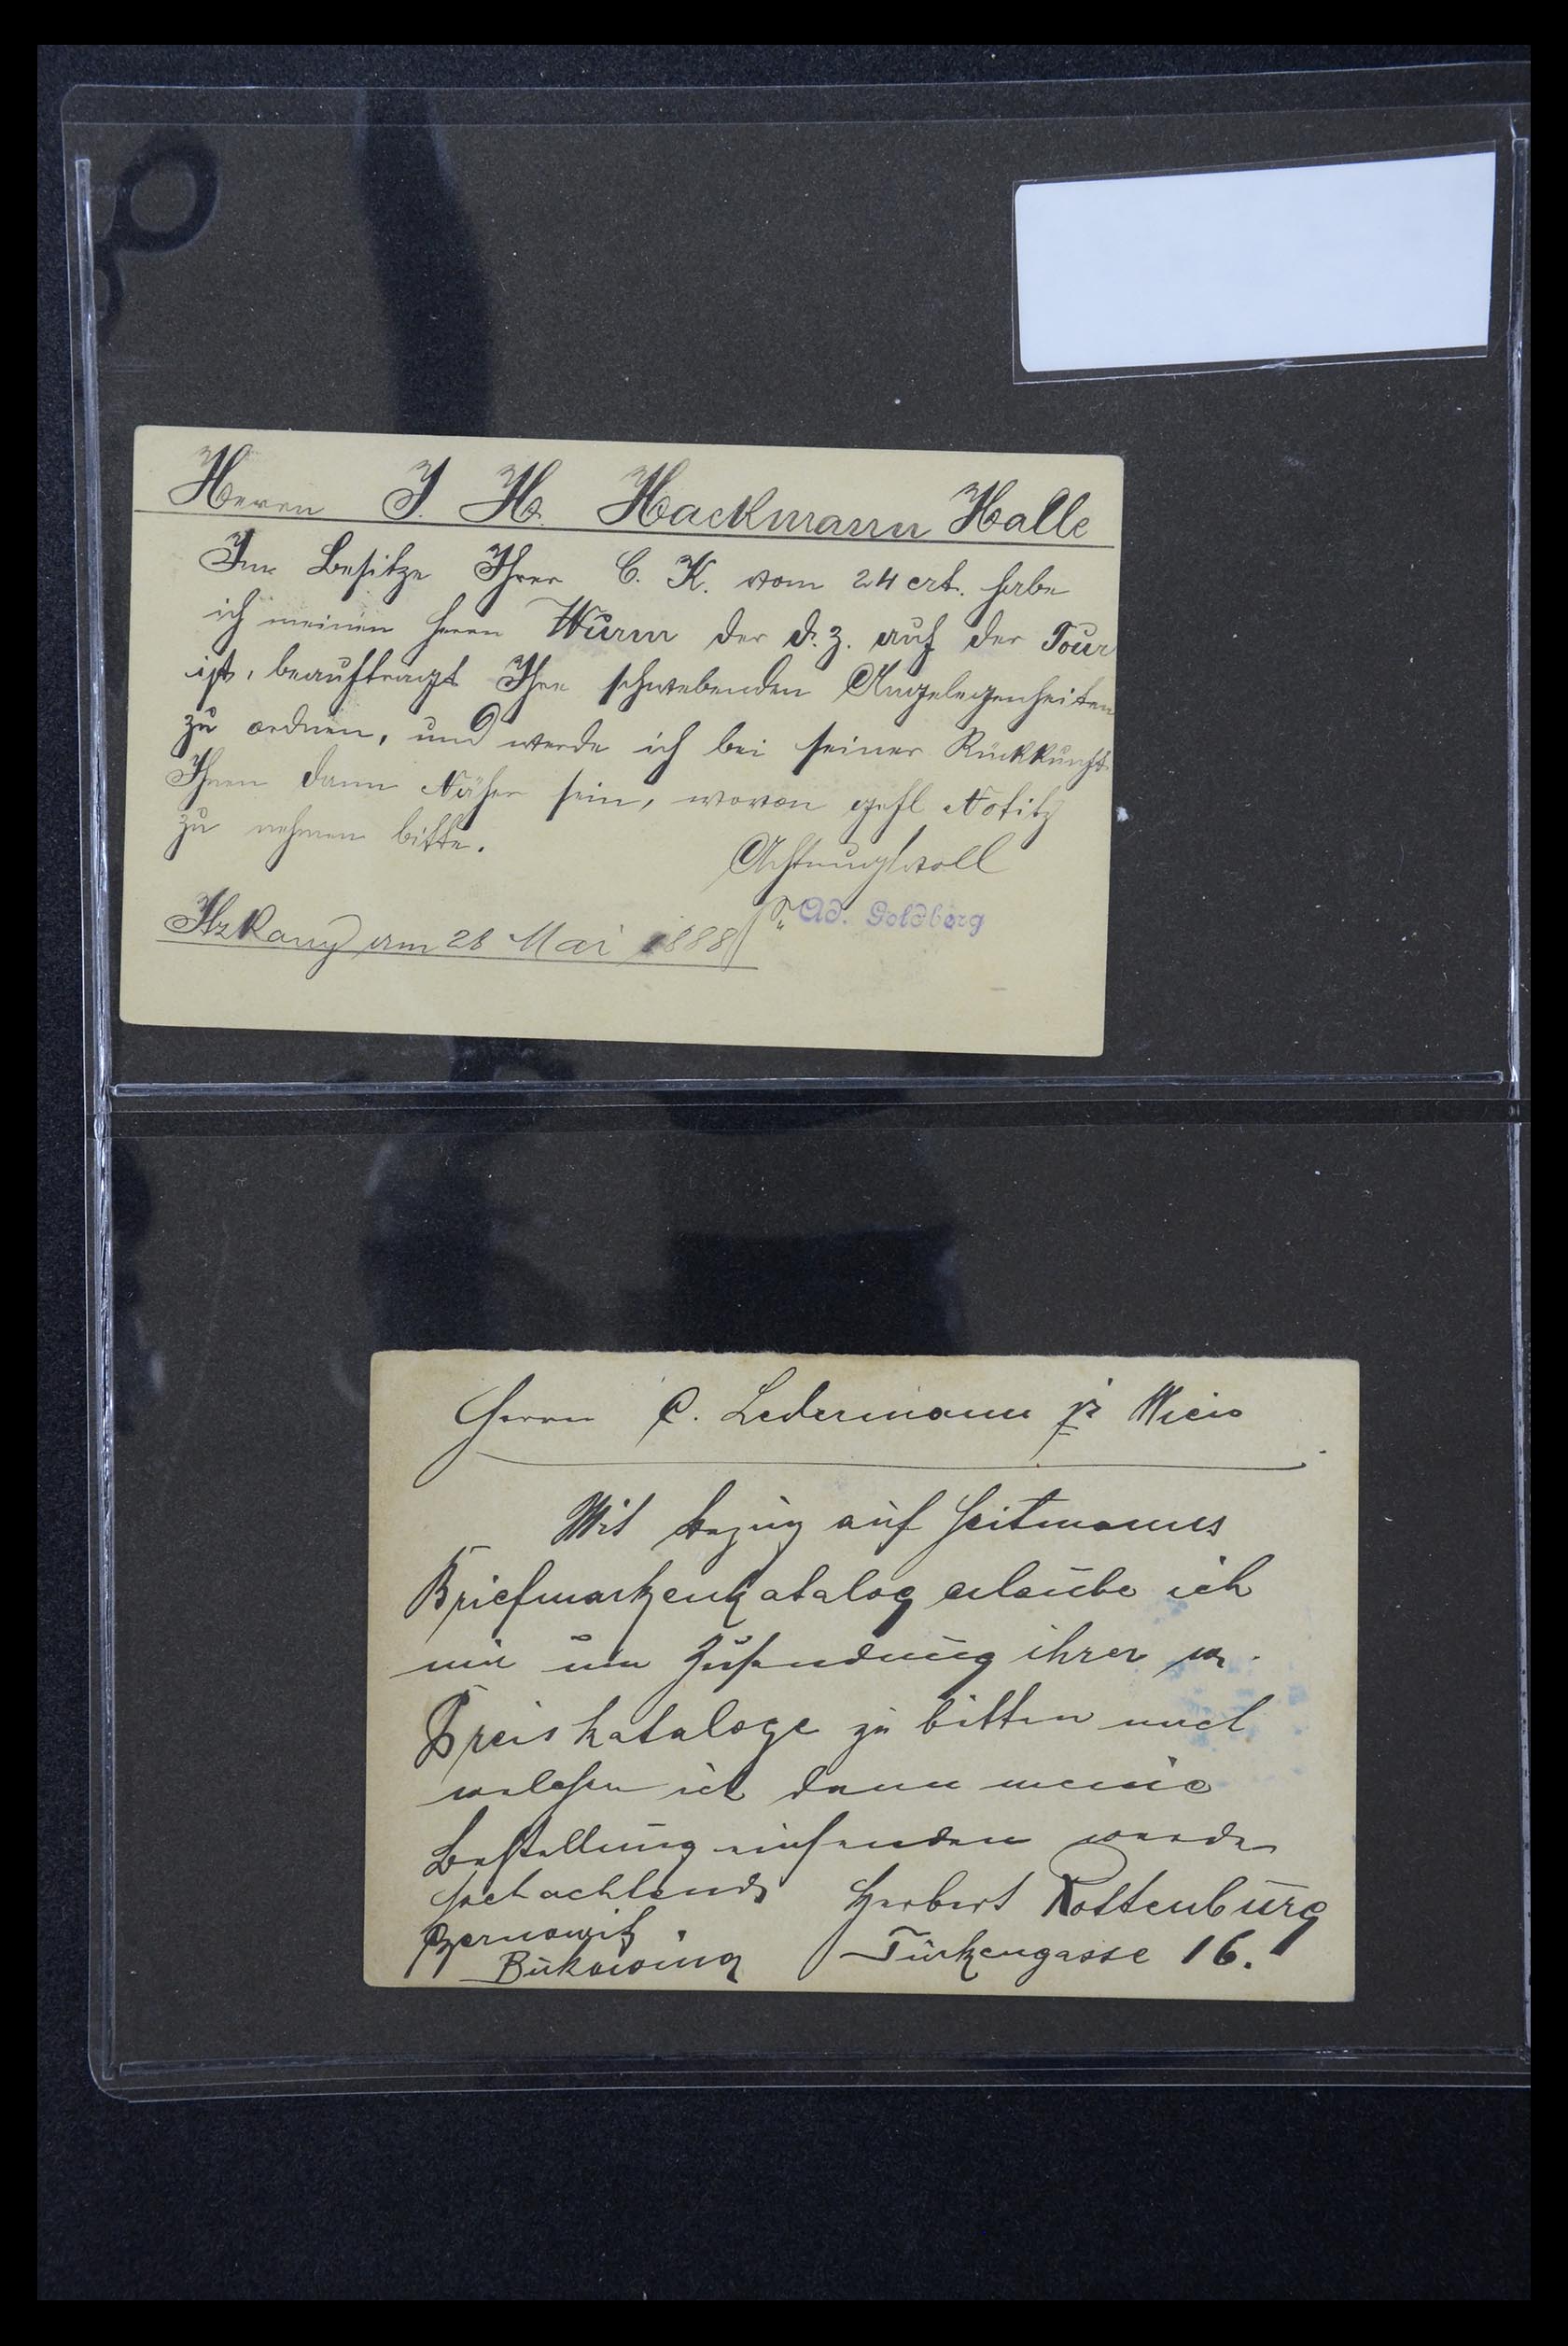 Herrn J. H. Hackmann Halle
Im Besitze Ihrer C. K. vom 24 crt. habe
ich meinen Herrn Wurm der d. z. auf der Tour
ist, beauftragt Ihre schwebenden Angelegenheiten
zu ordnen, und werde ich bei seiner Rückkunft
Ihnen dann Näher sein, wovon gefl Notitz
zu nehmen bitte.
Achtungsvoll
Ad. Goldberg
Itzkany am 28 Mai 1888
Herrn C. Ledermann jr Wien
Mit bezug auf
Briefmarkenkatalog erlaube ich
mir um Zusendung ihrer
Preiskataloge zu bitten und
ich dann meine
Bestellung einsenden werde
Hochachtend Herbert Rottenburg
Czernowitz
Bukowina Türkengasse 16.